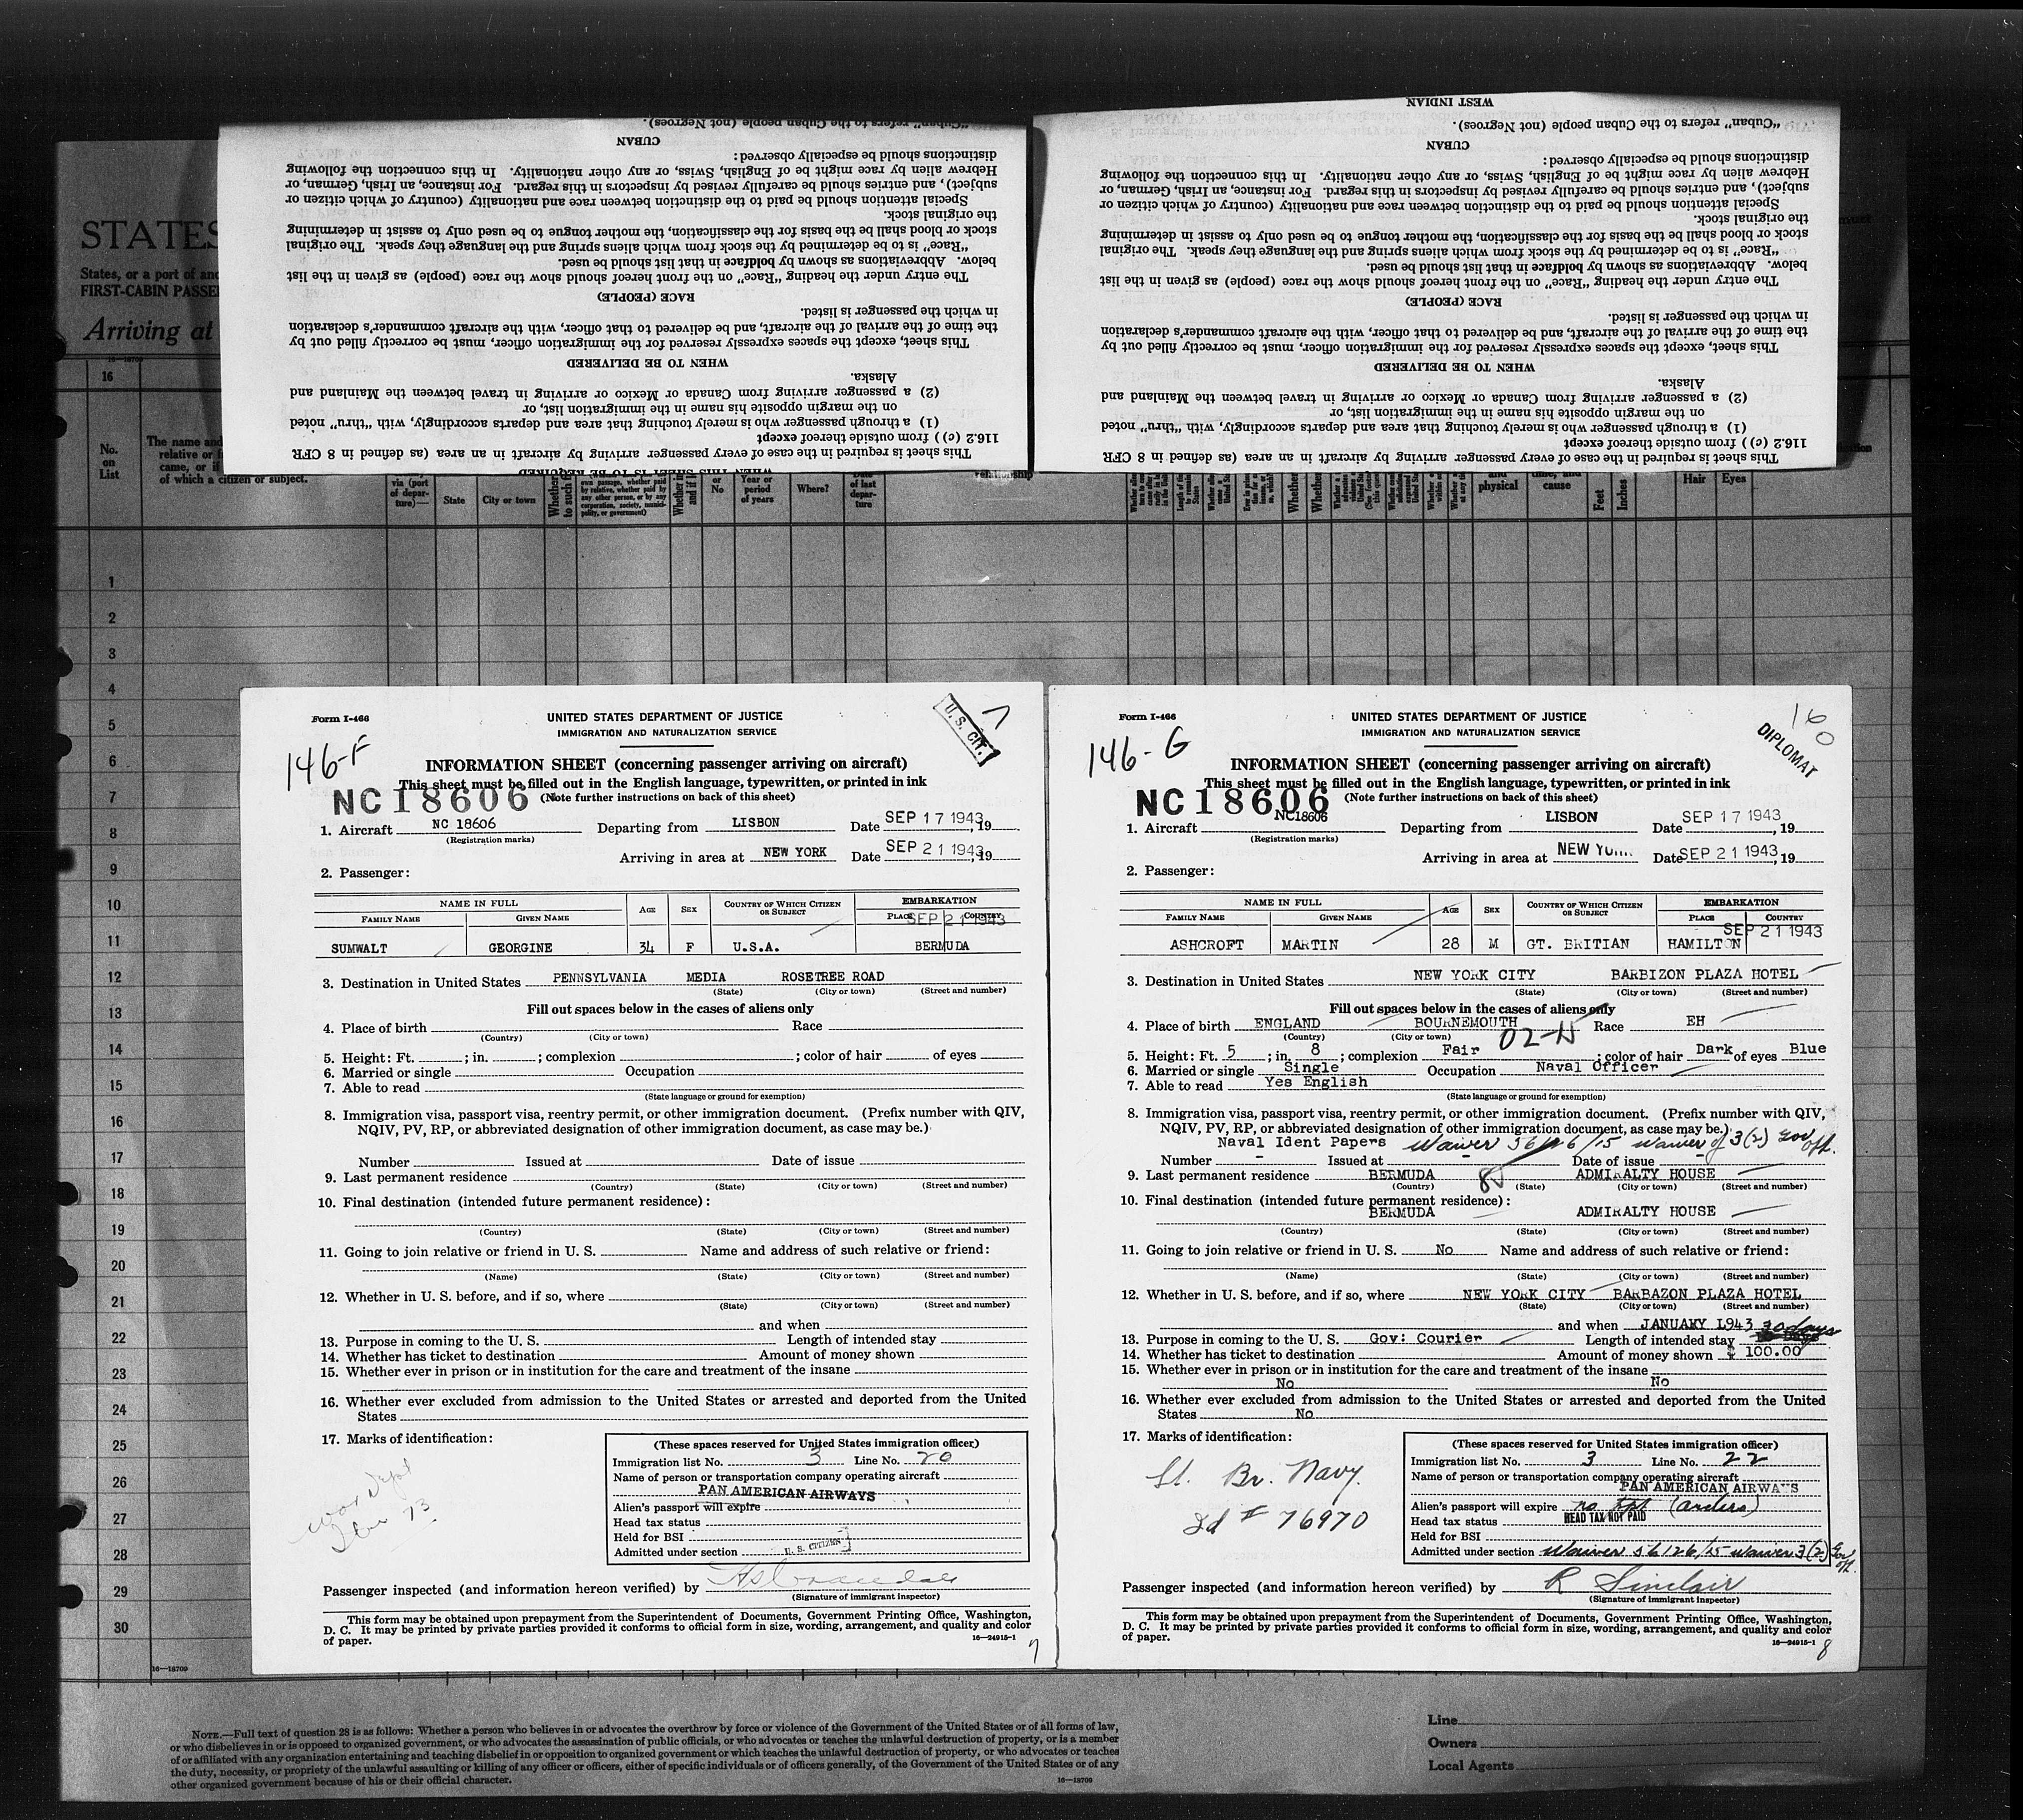 WEST INDIAN
"Cuban" refers to the Cuban people (not Negroes).
CUBAN
distinctions should be especially observed:
Hebrew alien by race might be of English, Swiss, or any other nationality. In this connection the following
subject), and entries should be carefully revised by inspectors in this regard. For instance, an Irish, German, or
Special attention should be paid to the distinction between race and nationality (country of which citizen or
the original stock.
stock or blood shall be the basis for the classification, the mother tongue to be used only to assist in determining
"Race" is to be determined by the stock from which aliens spring and the language they speak. The original
below. Abbreviations as shown by boldface in that list should be used.
The entry under the heading "Race" on the front hereof should show the race (people) as given in the list
RACE (PEOPLE)
in which the passenger is listed.
the time of the arrival of the aircraft, and be delivered to that officer, with the aircraft commander's declaration
This sheet, except the spaces expressly reserved for the immigration officer, must be correctly filled out by
WHEN TO BE DELIVERED
Alaska.
(2) a passenger arriving from Canada or Mexico or arriving in travel between the Mainland and
on the margin opposite his name in the immigration list, or
(1) a through passenger who is merely touching that area and departs accordingly, with "thru" noted
116.2 (c)) from outside thereof except
This sheet is required in the case of every passenger arriving by aircraft in an area (as defined in 8 CFR
WHEN THIS SHEET IS TO BE REQUIRED
"Cuban" refers to the Cuban people (not Negroes).
CUBAN
distinctions should be especially observed:
Hebrew alien by race might be of English, Swiss, or any other nationality. In this connection the following
subject), and entries should be carefully revised by inspectors in this regard. For instance, an Irish, German, or
Special attention should be paid to the distinction between race and nationality (country of which citizen or
the original stock.
stock or blood shall be the basis for the classification, the mother tongue to be used only to assist in determining
"Race" is to be determined by the stock from which aliens spring and the language they speak. The original
below. Abbreviations as shown by boldface in that list should be used.
The entry under the heading "Race" on the front hereof should show the race (people) as given in the list
RACE (PEOPLE)
in which the passenger is listed.
the time of the arrival of the aircraft, and be delivered to that officer, with the aircraft commander's declaration
This sheet, except the spaces expressly reserved for the immigration officer, must be correctly filled out by
WHEN TO BE DELIVERED
Alaska.
(2) a passenger arriving from Canada or Mexico or arriving in travel between the Mainland and
on the margin opposite his name in the immigration list, or
(1) a through passenger who is merely touching that area and departs accordingly, with "thru" noted
116.2 (c)) from outside thereof except
This sheet is required in the case of every passenger arriving by aircraft in an area (as defined in 8 CFR
STATES
States, or a port of
FIRST-CABIN
Arriving at
16
No. on List
The name and
relative or
came, or if
of which a citizen or subject.
via (port of departure)—
State
City or town
Year or period of years
Where?
relationship
physical
cause
Feet
Inches
Hair
Eyes
1
2
3
4
5
6
7
8
9
10
11
12
13
14
15
16
17
18
19
20
21
22
23
24
25
26
27
28
29
30
16—18709
Form I-466
UNITED STATES DEPARTMENT OF JUSTICE
IMMIGRATION AND NATURALIZATION SERVICE
U. S. CIT. 7
146-F
INFORMATION SHEET (concerning passenger arriving on aircraft)
This sheet must be filled out in the English language, typewritten, or printed in ink
NC18606 (Note further instructions on back of this sheet)
1. Aircraft NC 18606 Departing from LISBON Date SEP 17 1943, 19
(Registration marks)
Arriving in area at NEW YORK Date SEP 21 1943, 19
2. Passenger:
NAME IN FULL AGE SEX COUNTRY OF WHICH CITIZEN OR SUBJECT EMBARKATION
FAMILY NAME GIVEN NAME PLACE COUNTRY
SEP 21 1943
SUMWALT GEORGINE 34 F U.S.A. BERMUDA
3. Destination in United States PENNSYLVANIA MEDIA ROSETREE ROAD
(State) (City or town) (Street and number)
Fill out spaces below in the cases of aliens only
4. Place of birth Race
(Country) (City or town)
5. Height: Ft. ; in. ; complexion ; color of hair of eyes
6. Married or single Occupation
7. Able to read
(State language or ground for exemption)
8. Immigration visa, passport visa, reentry permit, or other immigration document. (Prefix number with QIV,
NQIV, PV, RP, or abbreviated designation of other immigration document, as case may be.)
Number Issued at Date of issue
9. Last permanent residence
(Country) (State) (City or town) (Street and number)
10. Final destination (intended future permanent residence):
(Country) (State) (City or town) (Street and number)
11. Going to join relative or friend in U. S. Name and address of such relative or friend:
(Name) (State) (City or town) (Street and number)
12. Whether in U. S. before, and if so, where
(State) (City or town) (Street and number)
and when
13. Purpose in coming to the U. S. Length of intended stay
14. Whether has ticket to destination Amount of money shown
15. Whether ever in prison or in institution for the care and treatment of the insane
16. Whether ever excluded from admission to the United States or arrested and deported from the United
States
17. Marks of identification:
War Dept
73
(These spaces reserved for United States immigration officer)
Immigration list No. 3 Line No. 20
Name of person or transportation company operating aircraft
PAN AMERICAN AIRWAYS
Alien's passport will expire
Head tax status
Held for BSI
Admitted under section U. S. CITIZEN
Passenger inspected (and information hereon verified) by
(Signature of immigrant inspector)
This form may be obtained upon prepayment from the Superintendent of Documents, Government Printing Office, Washington,
D. C. It may be printed by private parties provided it conforms to official form in size, wording, arrangement, and quality and color
of paper. 16—24915-1
7
Form I-466
UNITED STATES DEPARTMENT OF JUSTICE
IMMIGRATION AND NATURALIZATION SERVICE
16
0
DIPLOMAT
146-G
INFORMATION SHEET (concerning passenger arriving on aircraft)
This sheet must be filled out in the English language, typewritten, or printed in ink
NC18606 (Note further instructions on back of this sheet)
1. Aircraft NC18606 Departing from LISBON Date SEP 17 1943, 19
(Registration marks)
Arriving in area at NEW YO Date SEP 21 1943, 19
2. Passenger:
NAME IN FULL AGE SEX COUNTRY OF WHICH CITIZEN OR SUBJECT EMBARKATION
FAMILY NAME GIVEN NAME PLACE COUNTRY
SEP 21 1943
ASHCROFT MARTIN 28 M GT. BRITIAN HAMILTON
3. Destination in United States NEW YORK CITY BARBIZON PLAZA HOTEL
(State) (City or town) (Street and number)
Fill out spaces below in the cases of aliens only
4. Place of birth ENGLAND BOURNEMOUTH Race EH
(Country) (City or town) 02-N
5. Height: Ft. 5 ; in. 8 ; complexion Fair ; color of hair Dark of eyes Blue
6. Married or single Single Occupation Naval Officer
7. Able to read Yes English
(State language or ground for exemption)
8. Immigration visa, passport visa, reentry permit, or other immigration document. (Prefix number with QIV,
NQIV, PV, RP, or abbreviated designation of other immigration document, as case may be.)
Naval Ident Papers Waiver 56126/15 waiver of 3(2) Gov off.
Number - Issued at - Date of issue -
9. Last permanent residence BERMUDA ADMIRALTY HOUSE
(Country) (State) (City or town) (Street and number)
10. Final destination (intended future permanent residence):
BERMUDA ADMIRALTY HOUSE
(Country) (State) (City or town) (Street and number)
11. Going to join relative or friend in U. S. No Name and address of such relative or friend:
(Name) (State) (City or town) (Street and number)
12. Whether in U. S. before, and if so, where NEW YORK CITY BARBAZON PLAZA HOTEL
(State) (City or town) (Street and number)
and when JANUARY 1943
13. Purpose in coming to the U. S. Gov: Courier Length of intended stay 30 days
14. Whether has ticket to destination Amount of money shown $ 100.00
15. Whether ever in prison or in institution for the care and treatment of the insane
No No
16. Whether ever excluded from admission to the United States or arrested and deported from the United
States No
17. Marks of identification:
Lt. Br. Navy.
Id # 76970
(These spaces reserved for United States immigration officer)
Immigration list No. 3 Line No. 22
Name of person or transportation company operating aircraft
PAN AMERICAN AIRWAYS
Alien's passport will expire no ppt (orders)
Head tax status HEAD TAX NOT PAID
Held for BSI
Admitted under section Waiver 56126/15 waiver 3(2) Gov off.
Passenger inspected (and information hereon verified) by R Sinclair
(Signature of immigrant inspector)
This form may be obtained upon prepayment from the Superintendent of Documents, Government Printing Office, Washington,
D. C. It may be printed by private parties provided it conforms to official form in size, wording, arrangement, and quality and color
of paper. 16—24915-1
8
NOTE.—Full text of question 28 is as follows: Whether a person who believes in or advocates the overthrow by force or violence of the Government of the United States or of all forms of law,
or who disbelieves in or is opposed to organized government, or who advocates the assassination of public officials, or who advocates or teaches the unlawful destruction of property, or is a member
of or affiliated with any organization entertaining and teaching disbelief in or opposition to organized government or which teaches the unlawful destruction of property, or who advocates or teaches
the duty, necessity, or propriety of the unlawful assaulting or killing of any officer or officers, either of specific individuals or of officers generally, of the Government of the United States or of any
other organized government because of his or their official character.
16—18709
Line
Owners
Local Agents